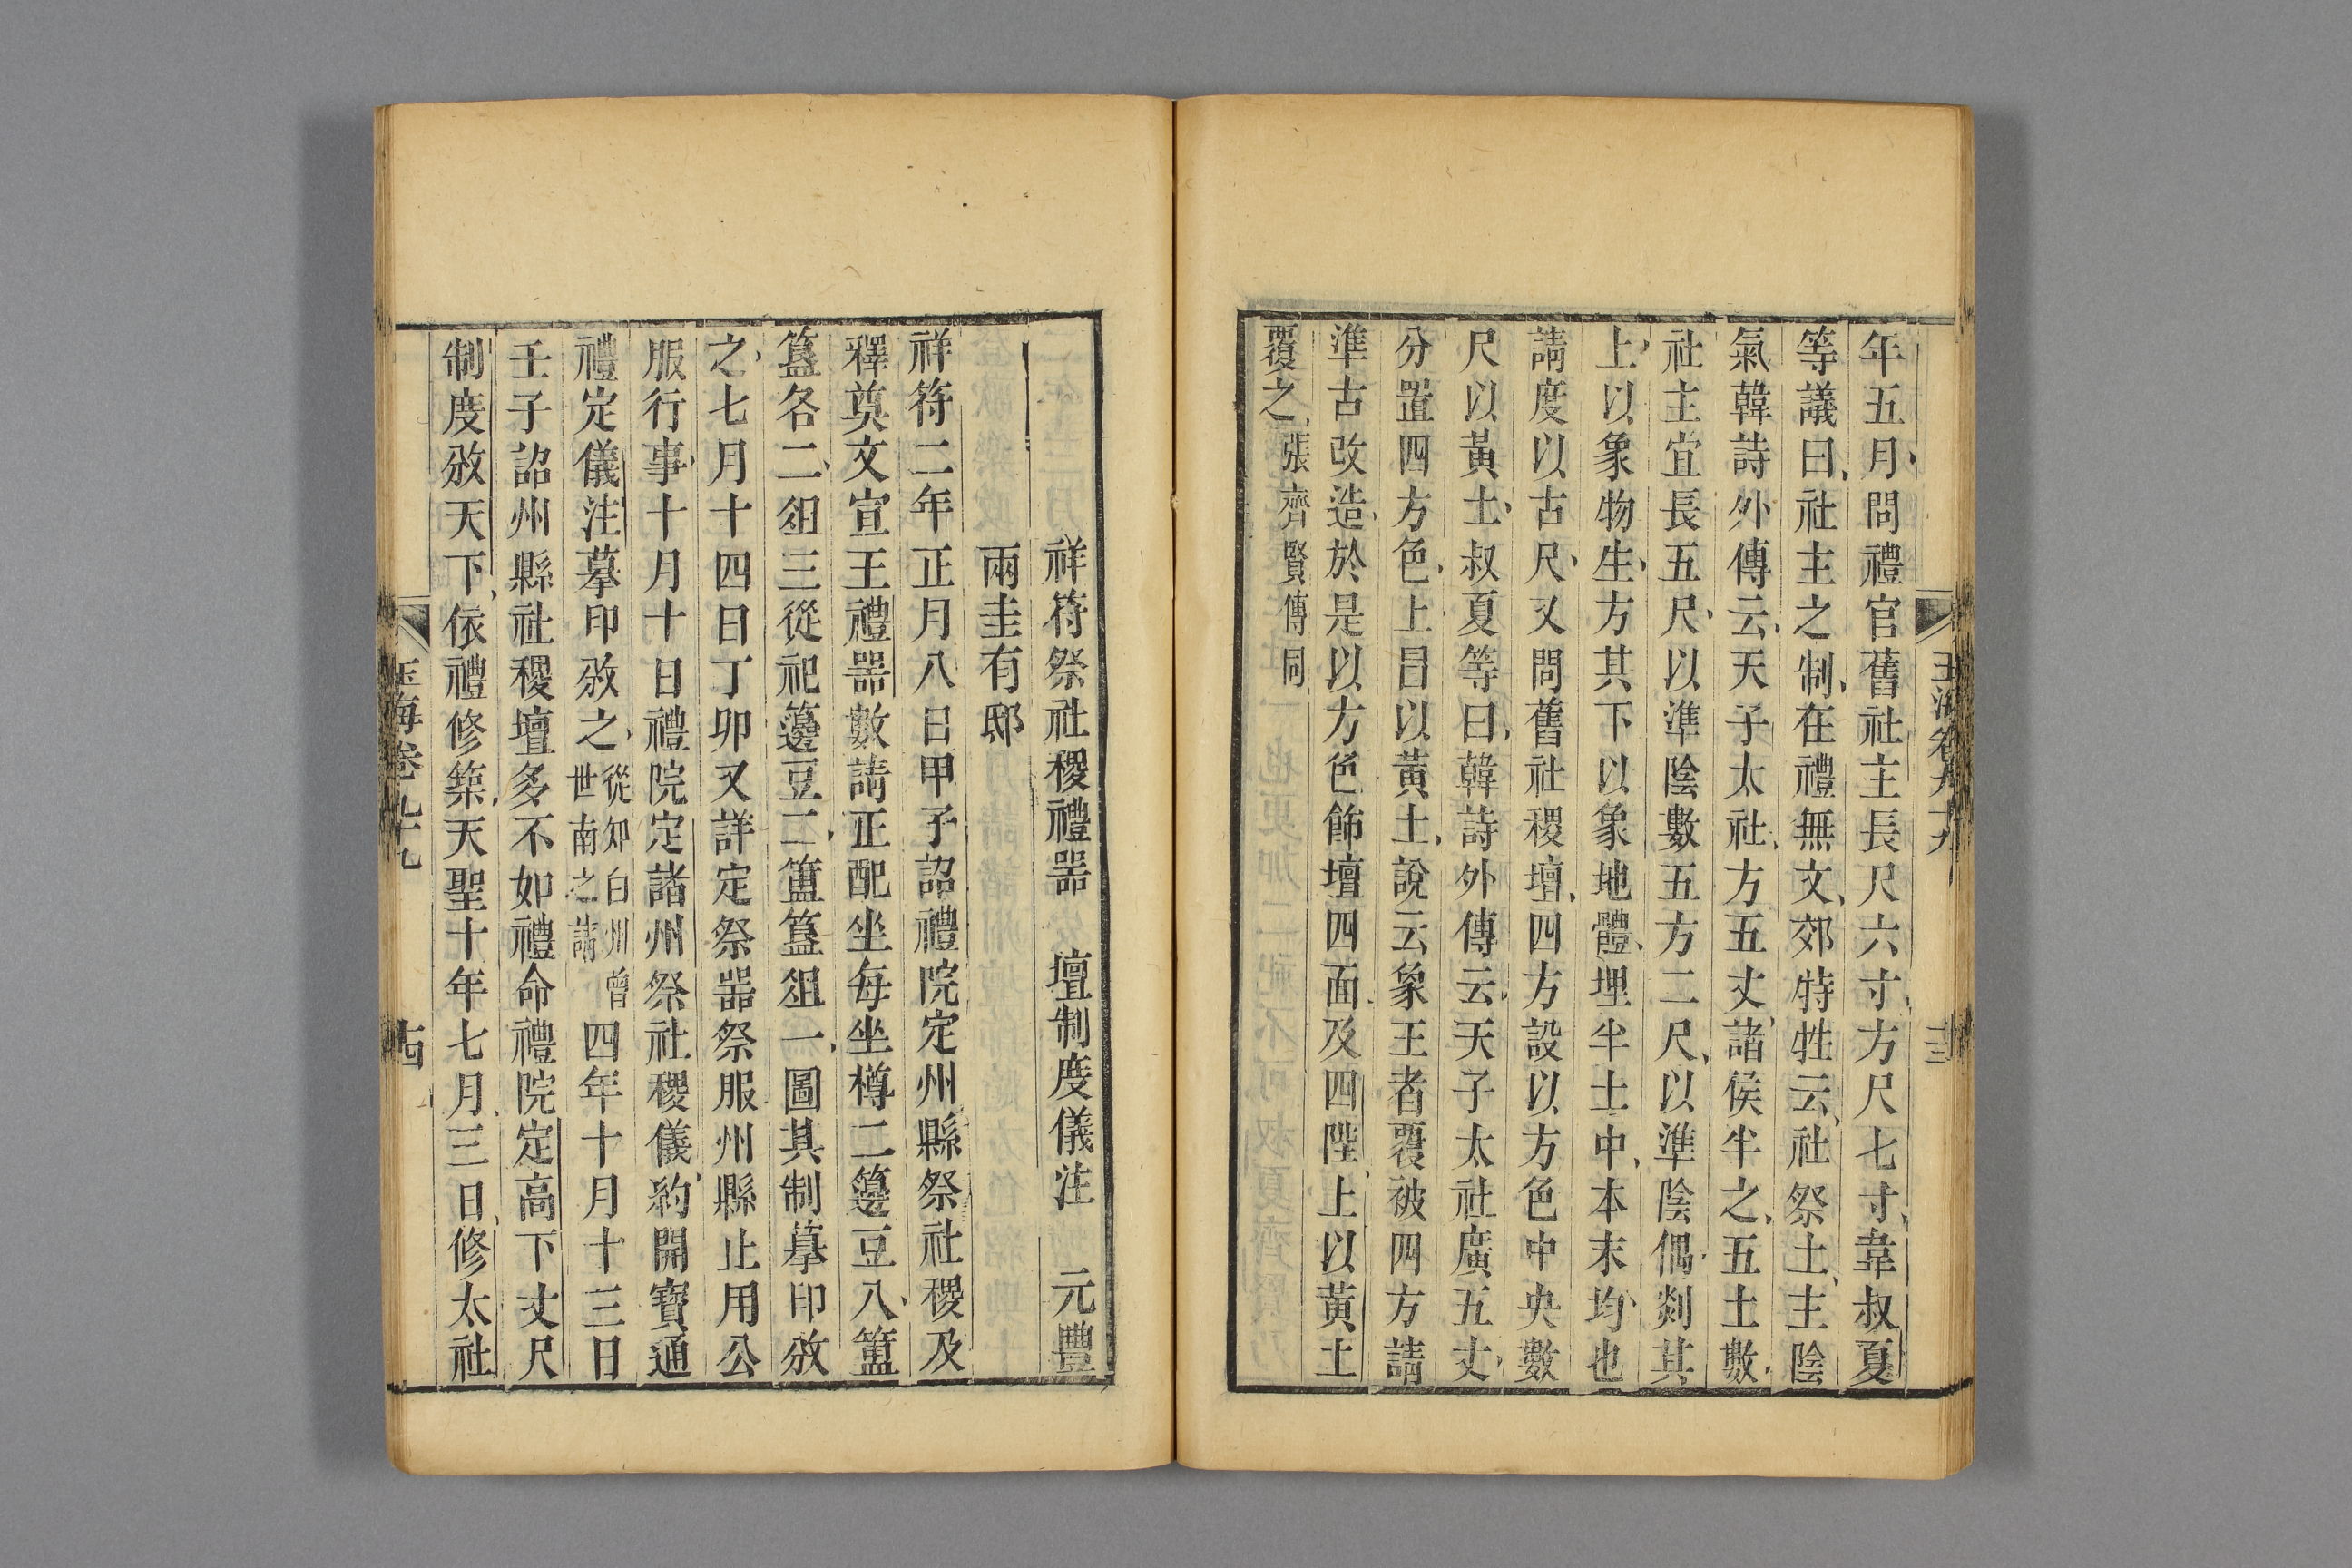 年五月問禮官舊社主長尺六寸方尺七寸韋叔夏
等議曰社主之制在禮無文郊特牲云社祭土主陰
氣韓詩外傳云天子太社方五丈諸侯半之五土數
社主宜長五尺以準陰數五方二尺以準陰偶剡其
上以象物生方其下以象地體埋半土中本末均也
請度以古尺又問舊社稷壇四方設以方色中央數
尺以黃土叔夏等曰韓詩外傳云天子太社廣五丈
分置四方色上冒以黃土說云象王者覆被四方請
準古改造於是以方色飾壇四面及四陛上以黃土
覆之張齊賢傳同
玉海卷九十九
十三
祥符祭社稷禮器 壇制度儀注 元豐
兩圭有邸
祥符二年正月八日甲子詔禮院定州縣祭社稷及
釋奠文宣王禮器數請正配坐每坐樽二籩豆八簠
簋各二俎三從祀籩豆二簠簋俎一圖其制摹印放
之七月十四日丁卯又詳定祭器祭服州縣止用公
服行事十月十日禮院定諸州祭社稷儀約開寶通
禮定儀注摹印放之從知白州曾世南之請四年十月十三日
壬子詔州縣社稷壇多不如禮命禮院定高下丈尺
制度放天下依禮修築天聖十年七月三日修太社
玉海卷九十九
十四